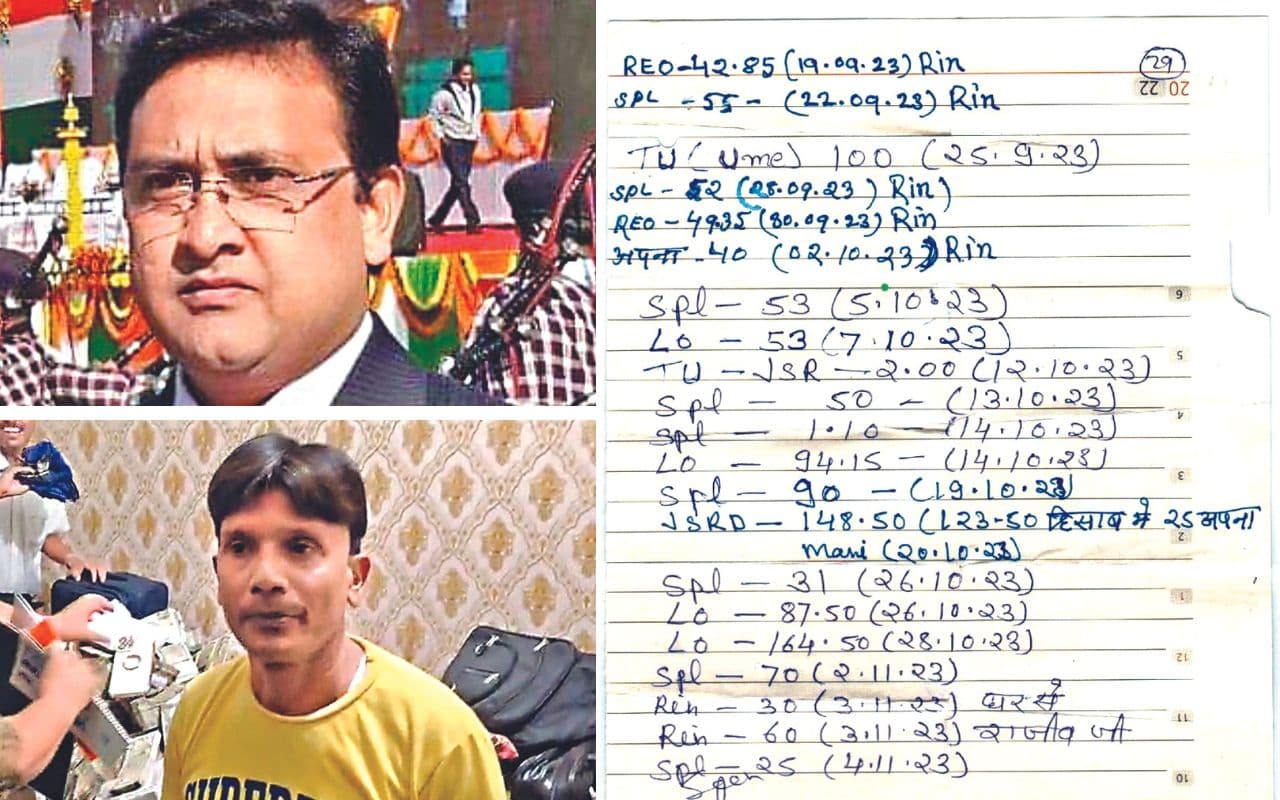 REO-42.85 (19.09.23) Rin
29
SPL - 55 - (22.09.23) Rin
20 22
TU (Ume) 100 (25.9.23)
SPL - 52 (28.09.23) Rin)
REO - 49.35 (30.09.23) Rin
अपना - 40 (02.10.23) Rin
Spl - 53 (5.10.23)
6
Lo - 53 (7.10.23)
5
TU - JSR - 2.00 (12.10.23)
Spl - 50 - (13.10.23)
4
Spl - 1.10 - (14.10.23)
Lo - 94.15 - (14.10.23)
3
Spl - 90 - (19.10.23)
JSRD - 148.50 (123-50 हिसाब मे 25 अपना
2
Mani (20.10.23)
Spl - 31 (26.10.23)
1
Lo - 87.50 (26.10.23)
Lo - 164.50 (28.10.23)
12
Spl - 70 (2.11.23)
Rin - 30 (3.11.23) घर से
11
Rin - 60 (3.11.23) राजीव जी
Spl - 25 (4.11.23)
10